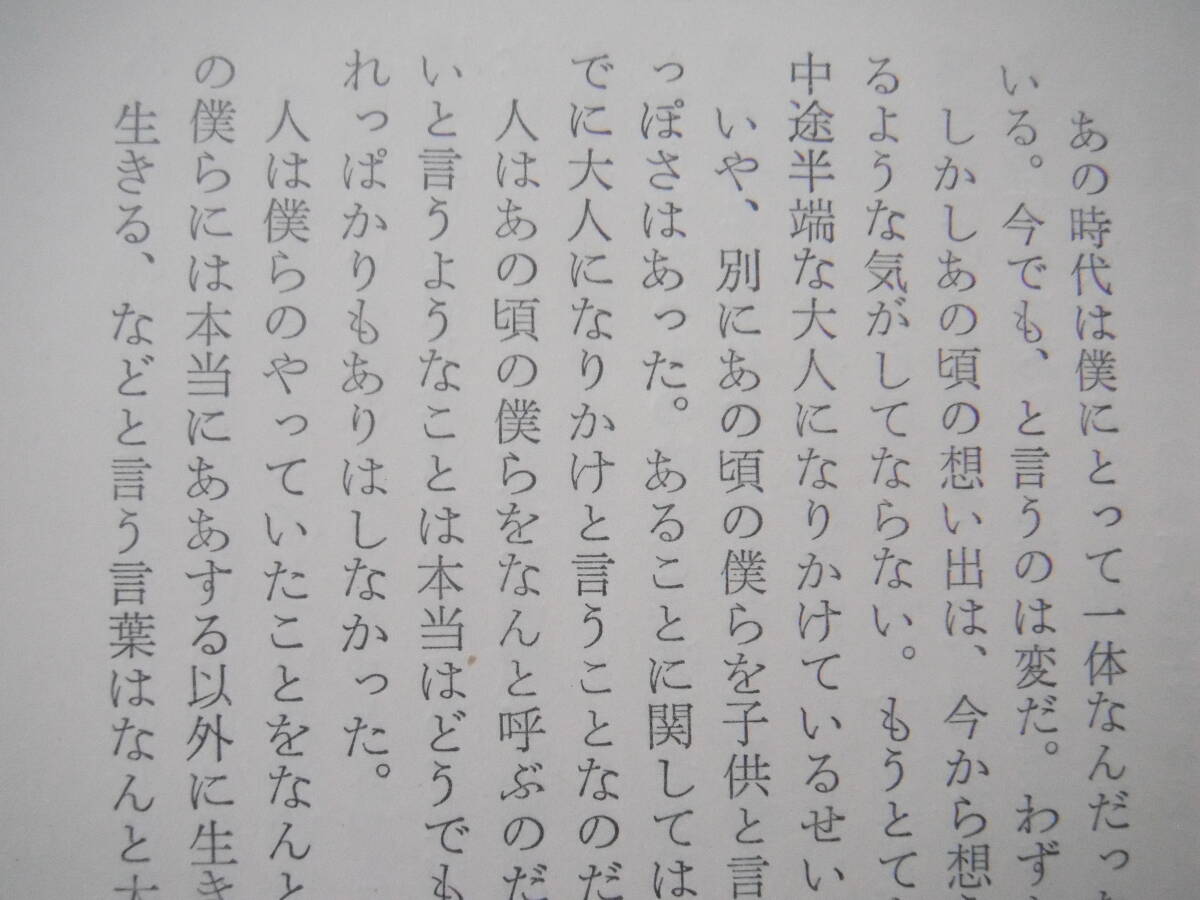 あの時代は僕にとって一体なんだっ
いる。今でも、と言うのは変だ。わず
しかしあの頃の想い出は、今から想
るような気がしてならない。もうとて
中途半端な大人になりかけているせい
いや、別にあの頃の僕らを子供と言
っぽさはあった。あることに関しては
でに大人になりかけと言うことなのだ
人はあの頃の僕らをなんと呼ぶのだ
いと言うようなことは本当はどうでも
れっぱかりもありはしなかった。
人は僕らのやっていたことをなんと
の僕らには本当にああする以外に生き
生きる、などと言う言葉はなんと